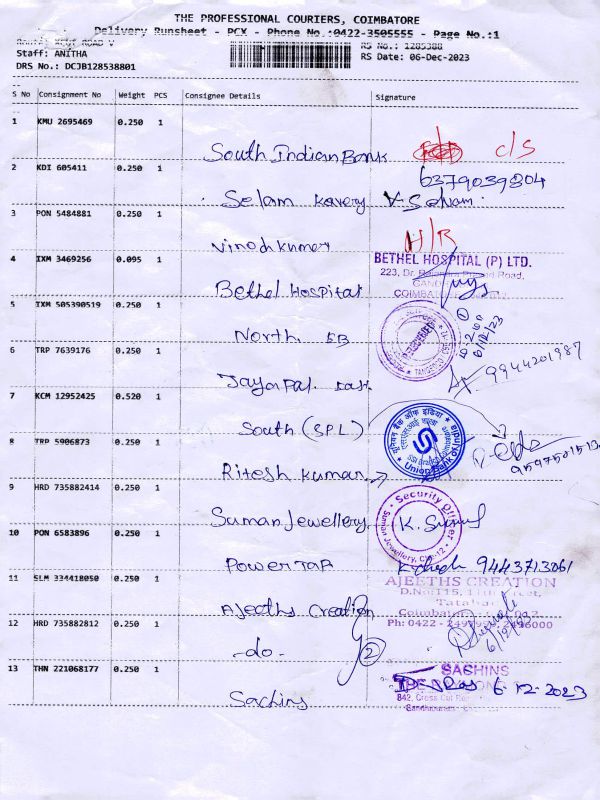 THE PROFESSIONAL COURIERS, COIMBATORE
Delivery Runsheet - PCX - Phone No.:0422-3505555 - Page No.:1
Staff: ANITHA
RS No.: 1285388
DRS No.: DCJB128538801
RS Date: 06-Dec-2023
S No Consignment No Weight PCS Consignee Details Signature
1 KMU 2695469 0.250 1
South Indian Bank c/s
6379039804
2 KDI 605411 0.250 1
Selam Kavery V. Selvam.
3 PON 5484881 0.250 1
Vinodh Kumar H/R
4 IXM 3469256 0.095 1
BETHEL HOSPITAL (P) LTD.
223, Dr. Road,
COIMBATORE
Bethel Hospital
5 IXM 505390519 0.250 1
North EB
6/12/23
6 TRP 7639176 0.250 1
9944201987
Jayapal
7 KCM 12952425 0.520 1
South (SPL)
यूनियन बैंक ऑफ इंडिया
Union Bank of India
8 TRP 5906873 0.250 1
Ritesh Kumar
9 HRD 735882414 0.250 1
Security Officer
Suman Jewellery, CBE-12
Suman Jewellery K.
10 PON 6583896 0.250 1
Power Tap 9443713061
11 SLM 334418050 0.250 1
AJEETHS CREATION
D.No:115,
Tatabad
Ajeeths Creation
12 HRD 735882812 0.250 1
Ph: 0422 - 2496000
6/12/23
-do- 2
13 THN 221068177 0.250 1
SACHINS
6-12-2023
842, Cross Cut
Sachins